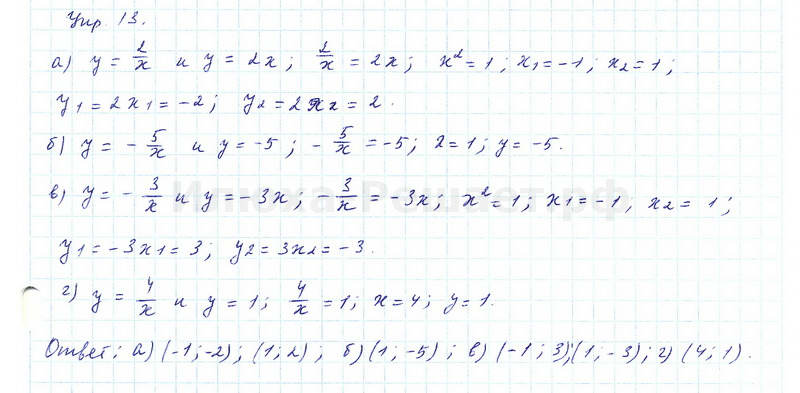 Упр. 13.
а) y = 2/x и y = 2x; 2/x = 2x; x² = 1; x1 = -1; x2 = 1;
y1 = 2x1 = -2; y2 = 2x2 = 2.
б) y = - 5/x и y = -5; - 5/x = -5; 2 = 1; y = -5.
в) y = - 3/x и y = -3x; - 3/x = -3x; x² = 1; x1 = -1, x2 = 1;
y1 = -3x1 = 3; y2 = 3x2 = -3.
г) y = 4/x и y = 1; 4/x = 1; x = 4; y = 1.
Ответ: а) (-1; -2); (1; 2); б) (1; -5); в) (-1; 3); (1; -3); г) (4; 1).